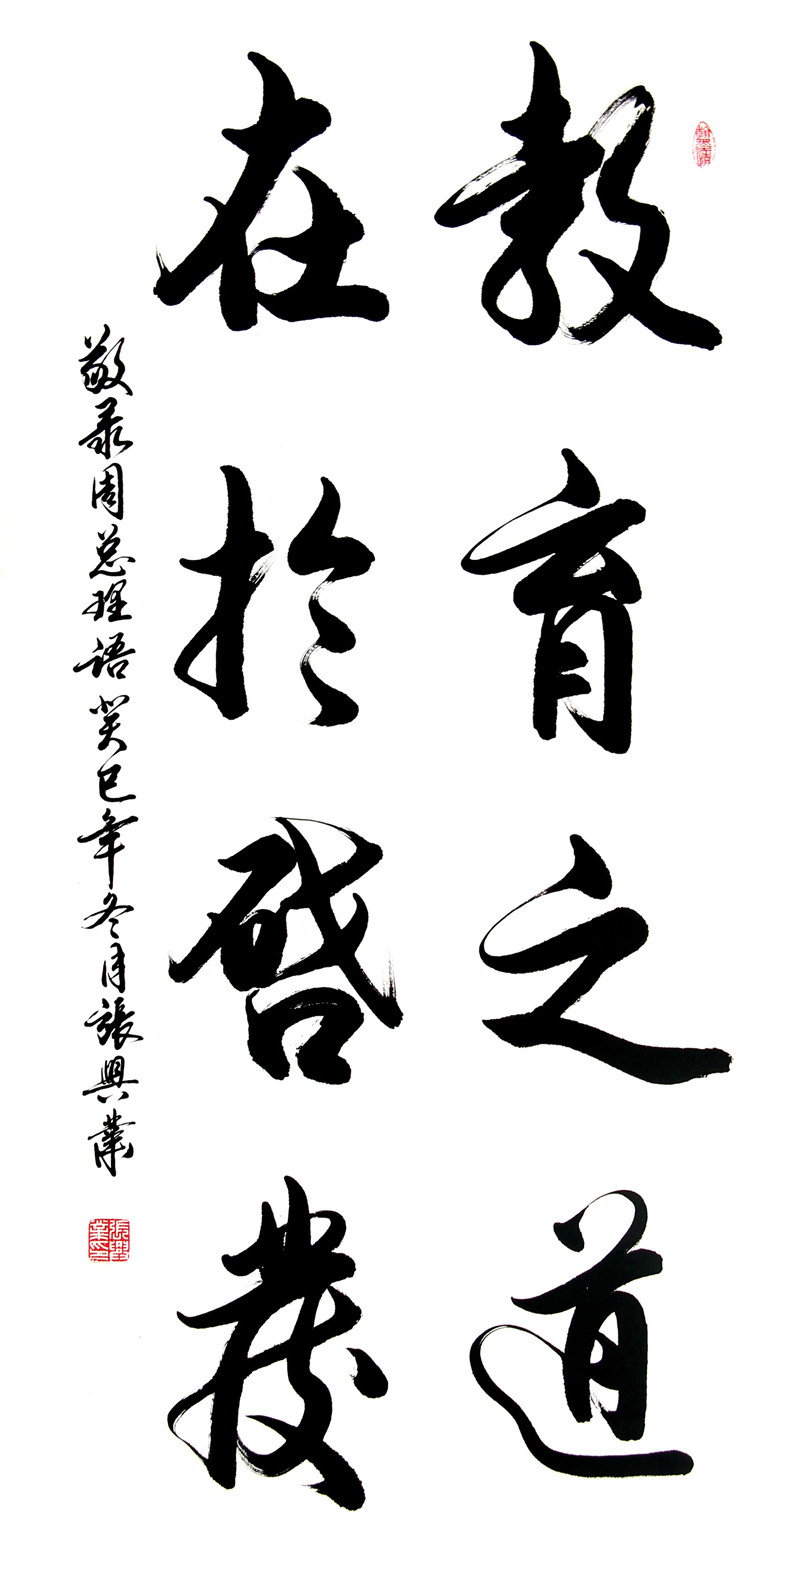 教育之道
在於啓發
敬录周总理语癸巳年冬月張興業